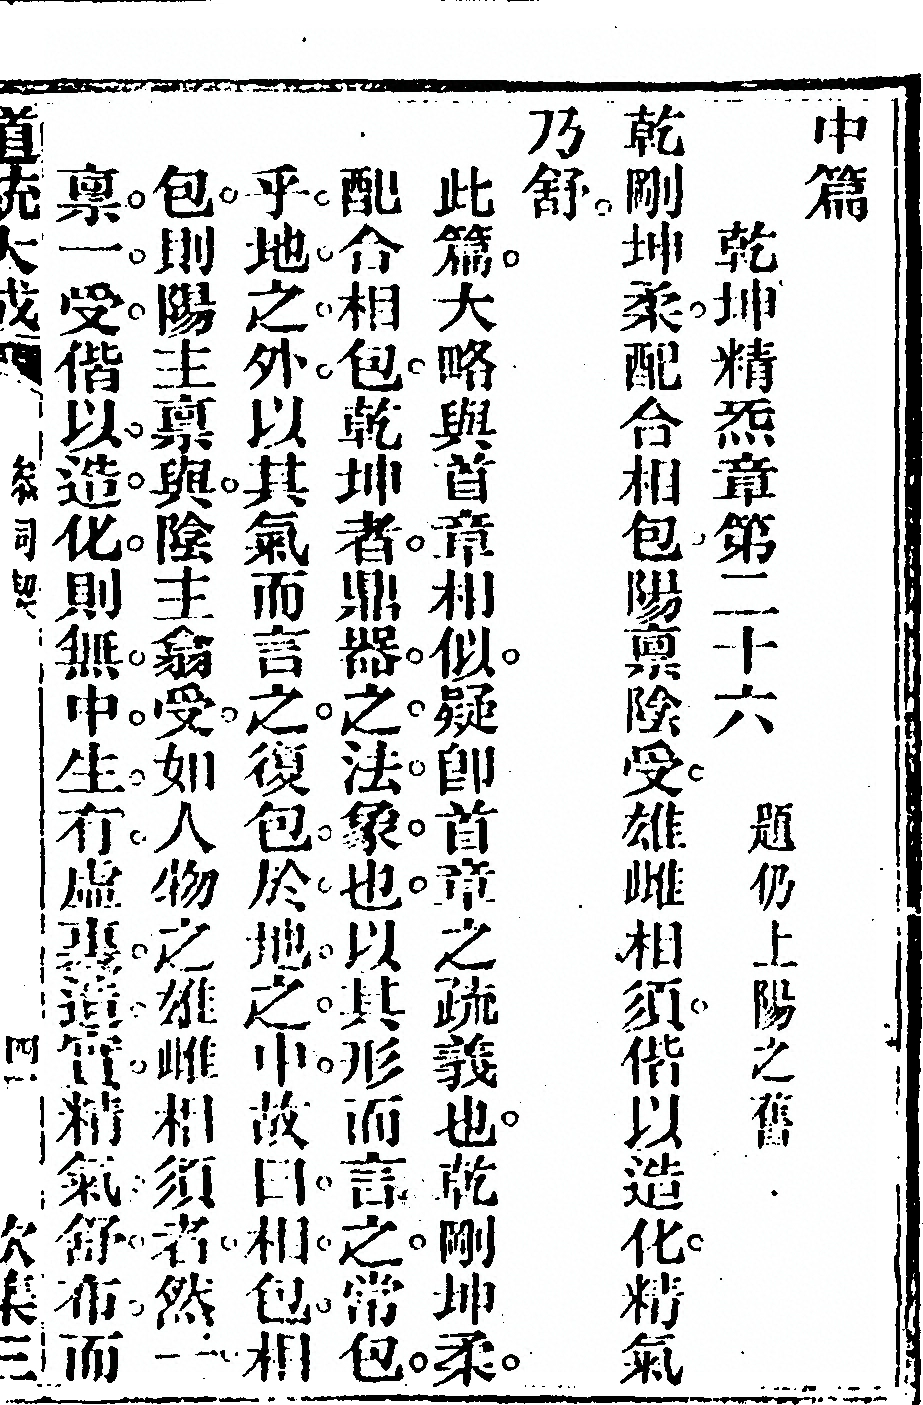 中篇
乾坤精炁章第二十六　題仍上陽之舊
乾剛坤柔。配合相包。陽稟陰受。雄雌相須。偕以造化。精氣
乃舒。
此篇。大略與首章相似。疑卽首章之疏義也。乾剛坤柔。
配合相包。乾坤者。鼎器。之。法。象。也。以其形而言之。常包。
乎。地。之。外。以其氣而言之。復包。於。地。之。中。故曰。相。包。相
包。則陽主稟與。陰主翕受。如人物之雄雌相須者。然。一
稟。一。受。偕以。造。化。則無。中。生。有。虛裏。造。實。精氣。舒。布。而
道統大成　參同契　四　次集三